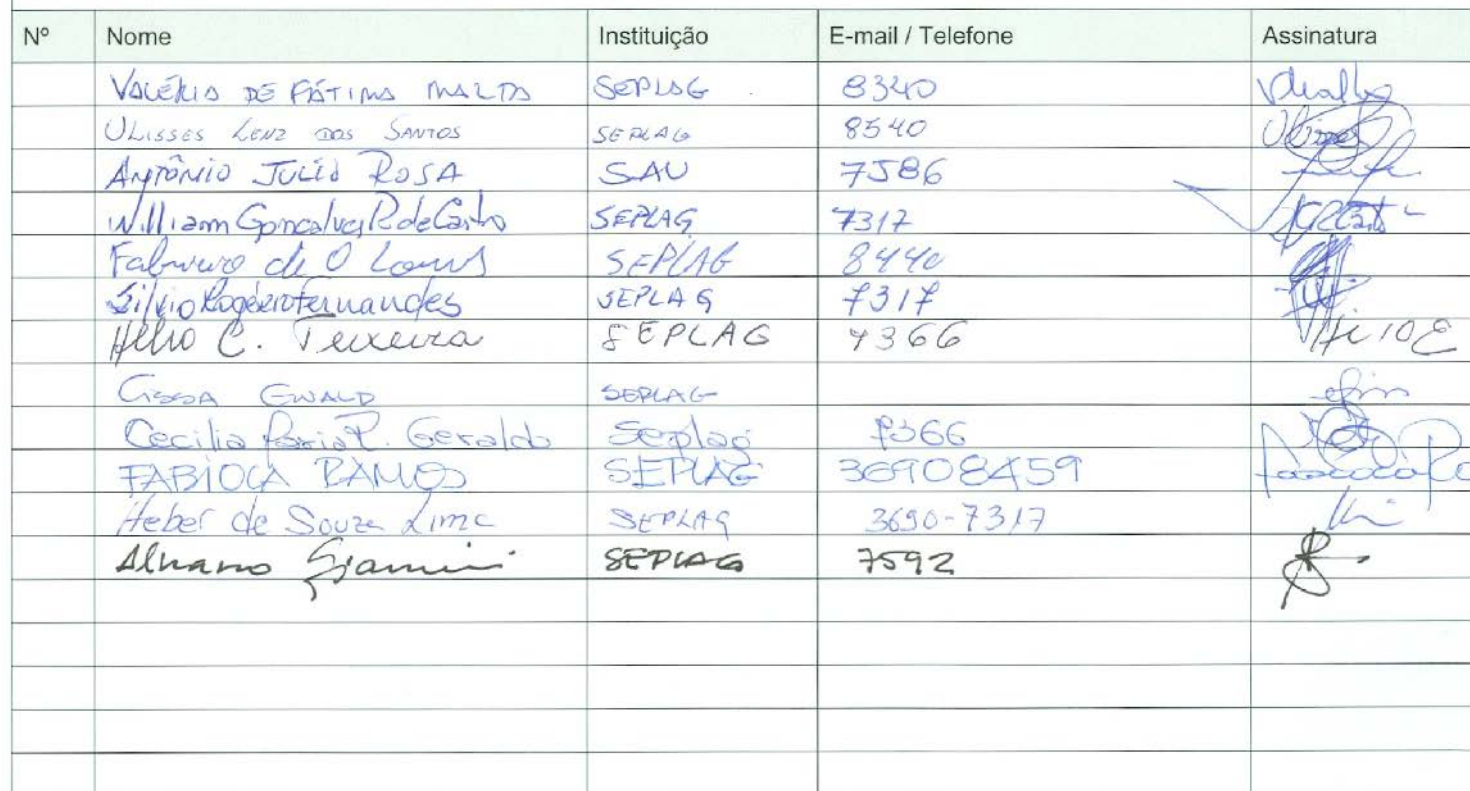 Nº Nome Instituição E-mail / Telefone Assinatura
VALÉRIA DE FÁTIMA MALTA SEPLAG 8340
ULISSES LENZ DOS SANTOS SEPLAG 8540
ANTÔNIO JULIO ROSA SAU 7586
William Gonçalves R de Castro SEPLAG 7317
de O SEPLAG 8440
Silvio Rogério Fernandes SEPLAG 7317
Hélio C. Teixeira SEPLAG 7366
CISSA EWALD SEPLAG
Cecilia P. Geraldo Seplag 7366
FABIOLA RAMOS SEPLAG 36908459
Heber de Souza Lima SEPLAG 3690-7317
Alvaro Giannini SEPLAG 7592